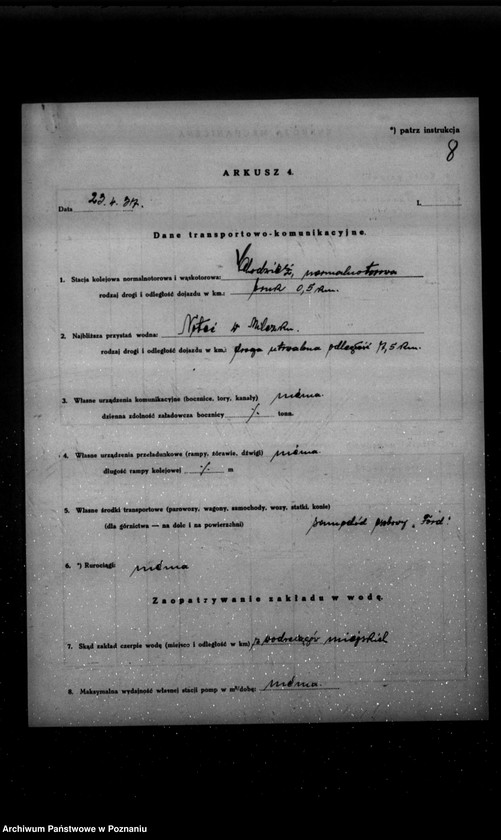 *) patrz instrukcja
8
ARKUSZ 4.
Data 23.4.37.
L
Dane transportowo-komunikacyjne.
1. Stacja kolejowa normalnotorowa i wąskotorowa: Chodzież, normalnotorowa
rodzaj drogi i odległość dojazdu w km.: bruk 0,5 km.
2. Najbliższa przystań wodna: Noteć w
rodzaj drogi i odległość dojazdu w km.: droga utrwalona odległość 7,5 km.
3. Własne urządzenia komunikacyjne (bocznice, tory, kanały) niéma.
dzienna zdolność załadowcza bocznicy ./. tonn.
4. Własne urządzenia przeładunkowe (rampy, żórawie, dźwigi) niéma
długość rampy kolejowej ./. m
5. Własne środki transportowe (parowozy, wagony, samochody, wozy, statki, konie)
(dla górnictwa — na dole i na powierzchni) samochód osobowy „Ford"
6. *) Rurociągi: niéma
Zaopatrywanie zakładu w wodę.
7. Skąd zakład czerpie wodę (miejsce i odległość w km) z wodociągów miejskich
8. Maksymalna wydajność własnej stacji pomp w m³/dobę: niéma.
Archiwum Państwowe w Poznaniu